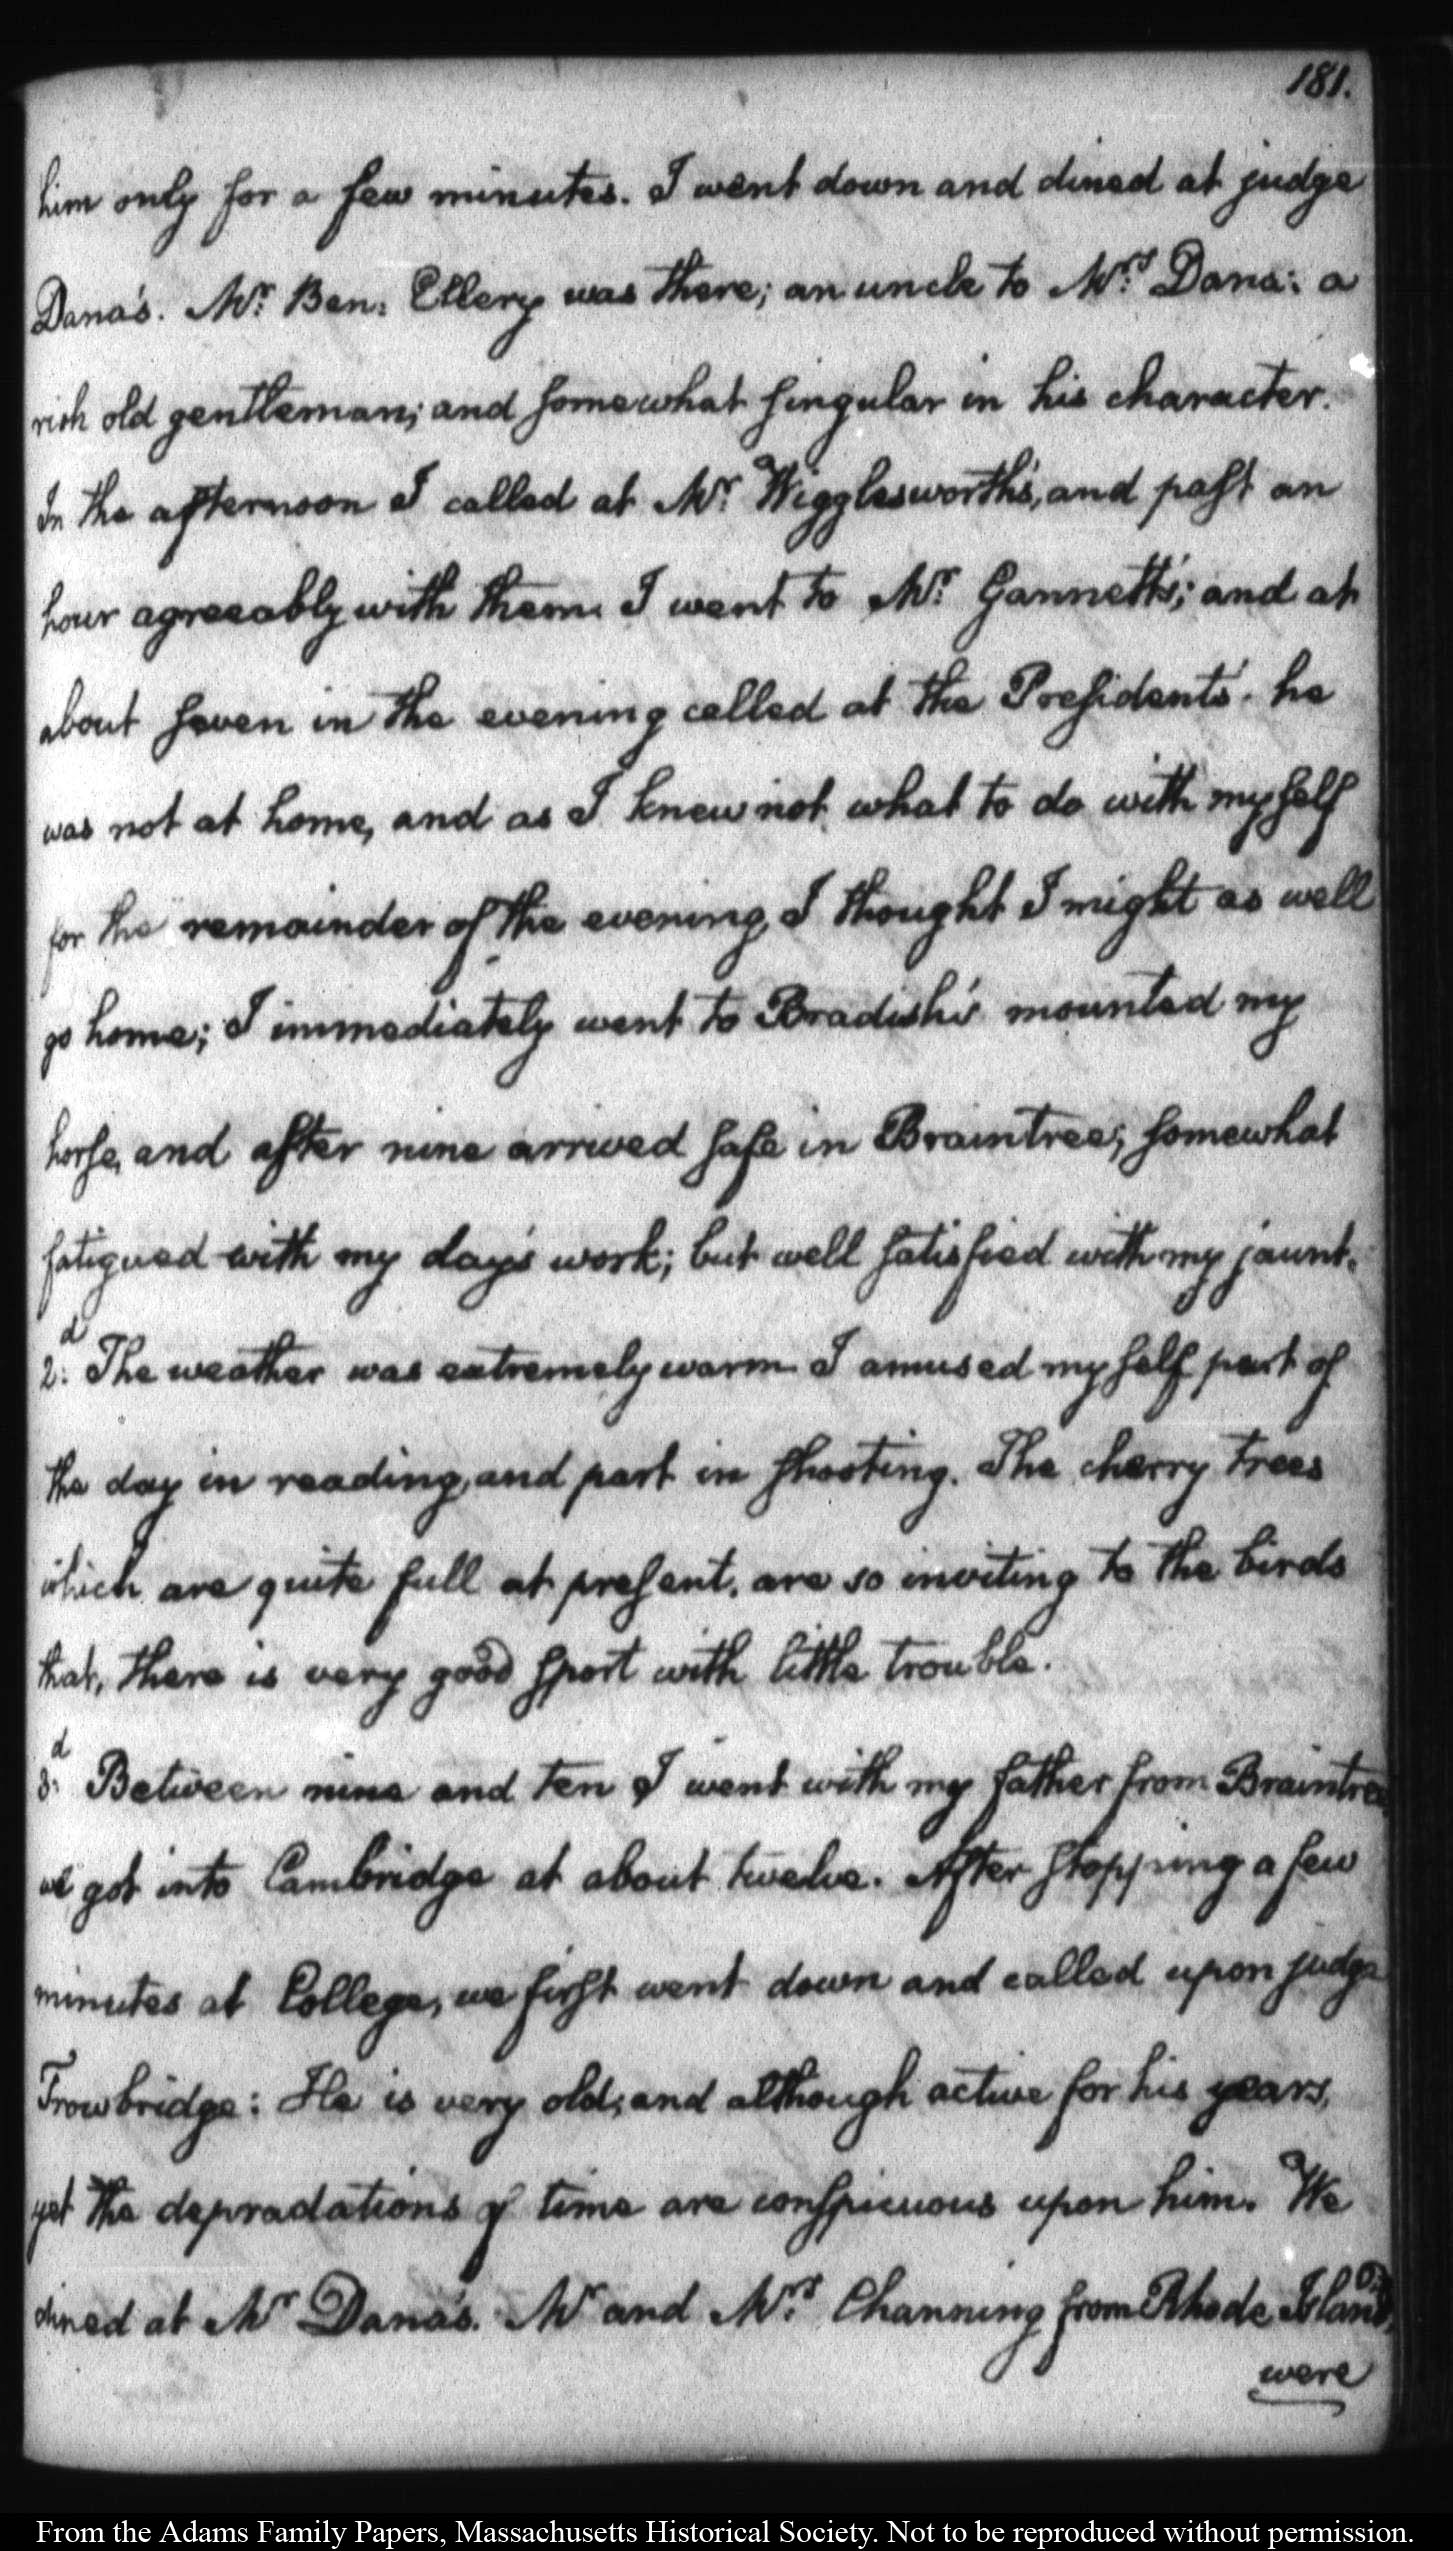 181.
him only for a few minutes. I went down and dined at judge
Dana's. Mr. Ben: Ellery was there; an uncle to Mrs. Dana: a
rich old gentleman; and somewhat singular in his character.
In the afternoon I called at Mr. Wigglesworth's, and past an
hour agreeably with them. I went to Mr. Gannett's; and at
about seven in the evening called at the President's. he
was not at home, and as I knew not what to do with myself
for the remainder of the evening, I thought I might as well
go home; I immediately went to Bradish's mounted my
horse, and after nine arrived safe in Braintree; somewhat
fatigued with my day's work; but well satisfied with my jaunt.
2d: The weather was extremely warm. I amused myself part of
the day in reading, and part in shooting. The cherry trees
which are quite full at present, are so inviting to the birds
that, there is very good sport with little trouble.
3d: Between nine and ten I went with my father from Braintree
we got into Cambridge at about twelve. After stopping a few
minutes at College, we first went down and called upon judge
Trowbridge: He is very old, and although active for his years,
yet the depradations of time are conspicuous upon him. We
dined at Mr Dana's. Mr and Mrs. Channing from Rhode Island,
were
From the Adams Family Papers, Massachusetts Historical Society. Not to be reproduced without permission.